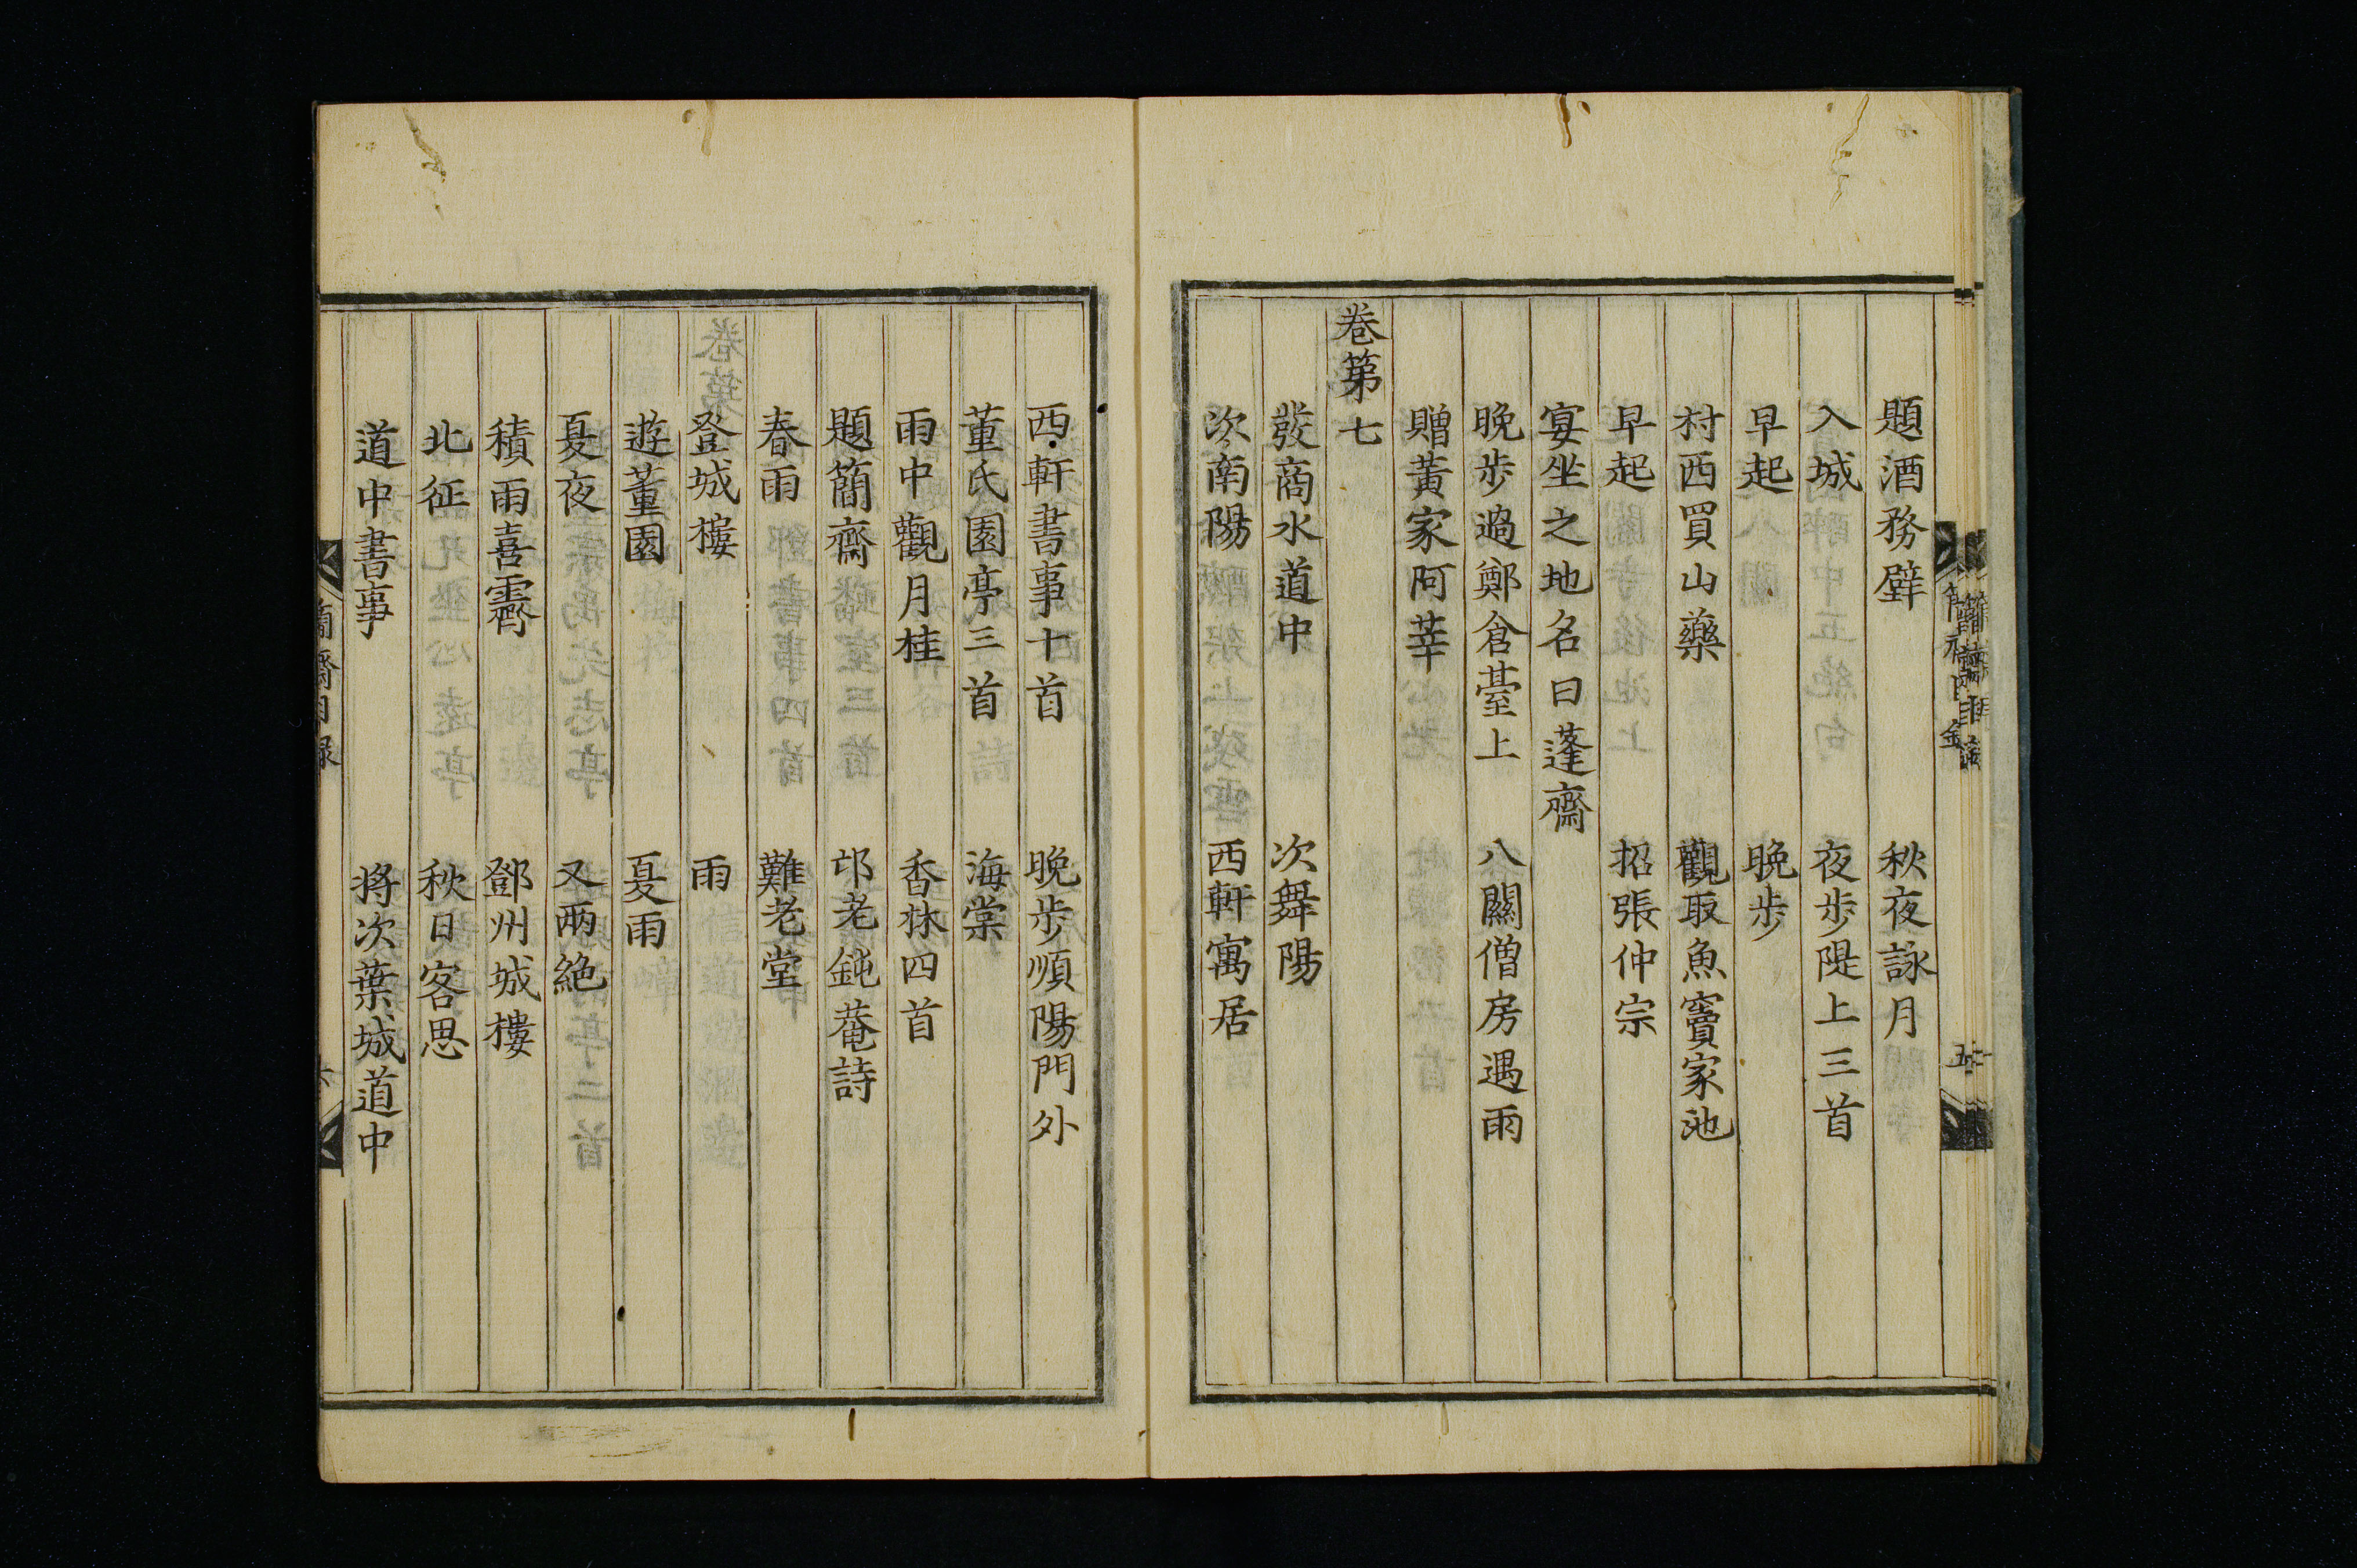 題酒務壁　秋夜詠月
入城　夜步隄上三首
早起　晚步
村西買山藥　觀取魚竇家池
早起　招張仲宗
宴坐之地名曰蓬齋
晚步過鄭倉臺上　八關僧房遇雨
贈黃家阿莘
卷第七
發商水道中　次舞陽
次南陽　西軒寓居
西軒書事十首　晚步順陽門外
董氏園亭三首　海棠
雨中觀月桂　香林四首
題簡齋　邙老鈍菴詩
春雨　難老堂
登城樓　雨
遊董園　夏雨
夏夜　又兩絕
積雨喜霽　鄧州城樓
北征　秋日客思
道中書事　將次葉城道中
簡齋目錄　六